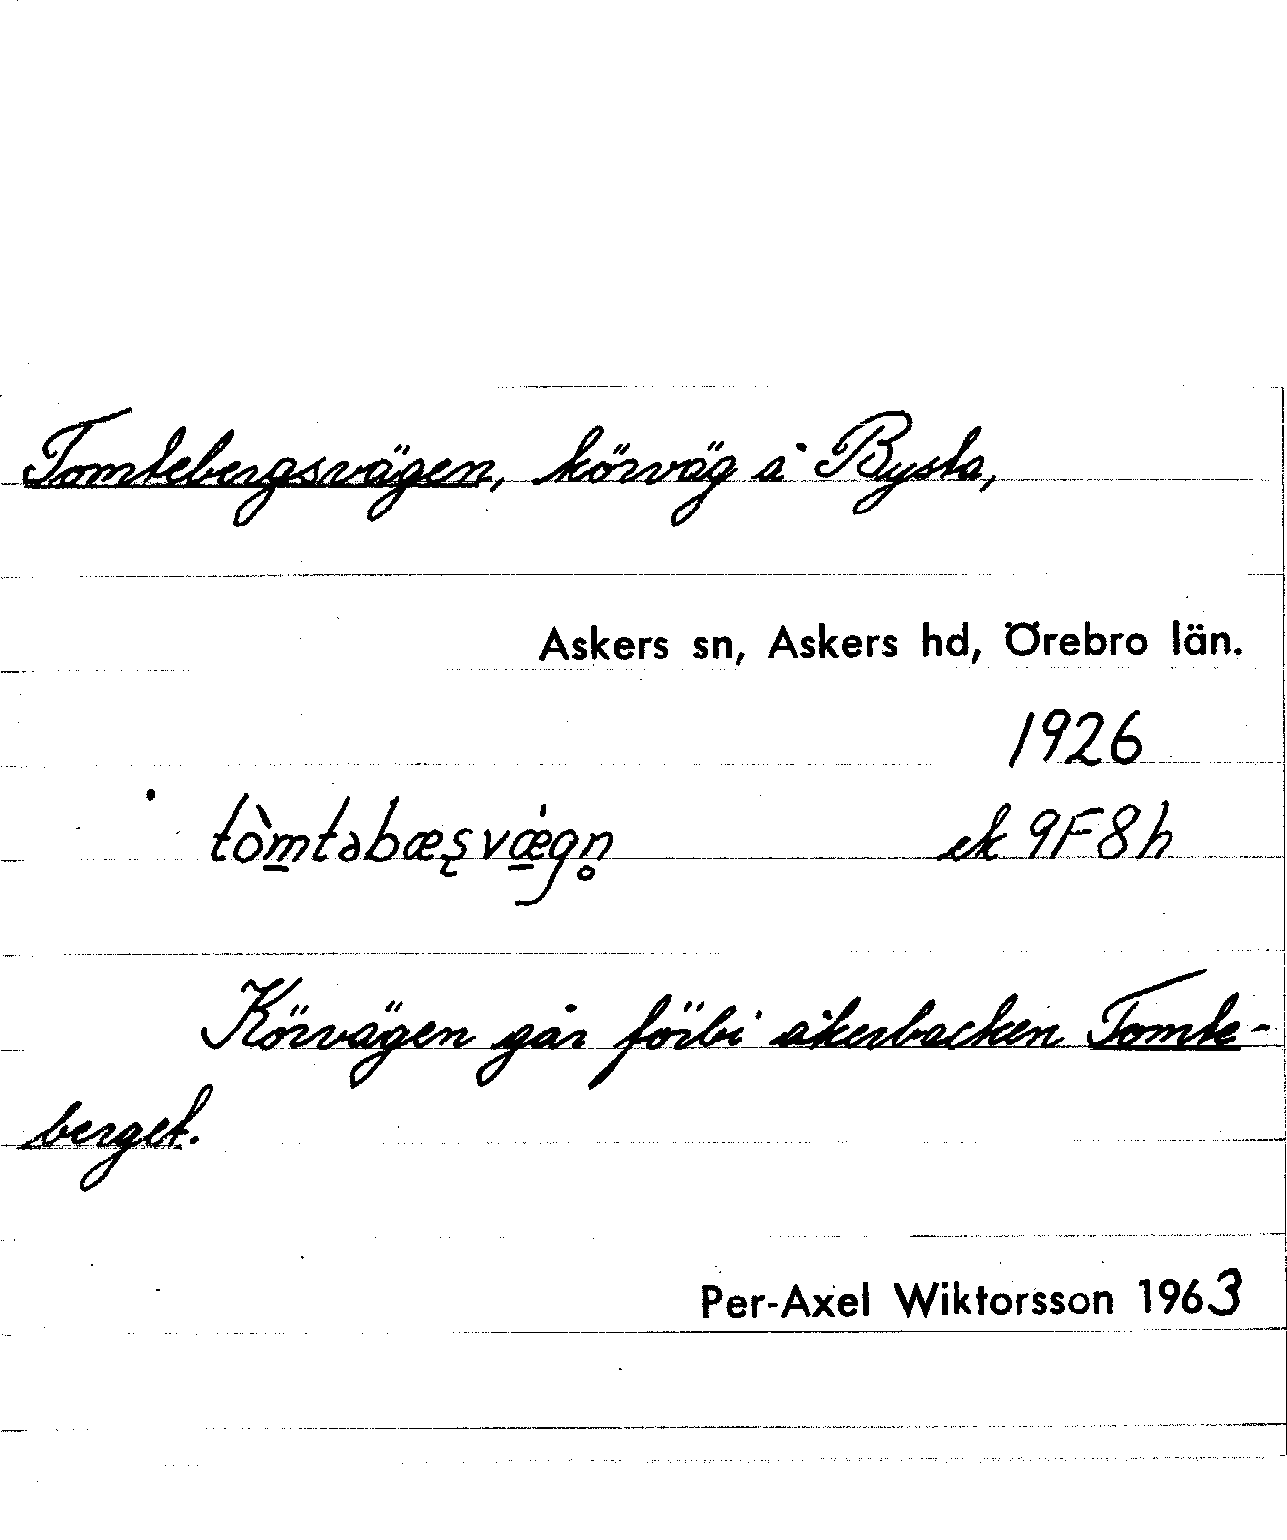 Tomtebergsvägen, körväg å Bysta,
Askers sn, Askers hd, Örebro län.
1926
tòm̲təbæʂvǽ̲gn̥ ek 9F8h
Körvägen går förbi åkerbacken Tomte-
berget.
Per-Axel Wiktorsson 1963